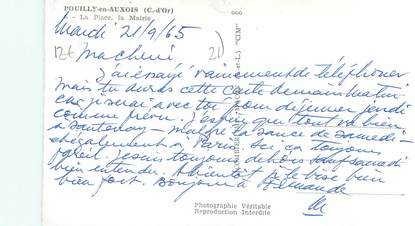 POUILLY-en-AUXOIS (C.-d'Or)
- La Place, la Mairie
Mardi 21/9/65
21)
Ma chérie
J'ai essayé vainement de téléphoner
mais tu auras cette carte demain matin
car je serai avec toi pour déjeuner jeudi
comme prévu. J'espère que tout va bien
à Santenay - malgré la sauce de samedi -
également à Paris. Ici ça toujours
pareil. Je suis toujours dehors sauf samedi
bien entendu. A bientôt je te bise bien
bien fort. Bonjour à Fernande
"CIM"
Photographie Véritable
Reproduction Interdite